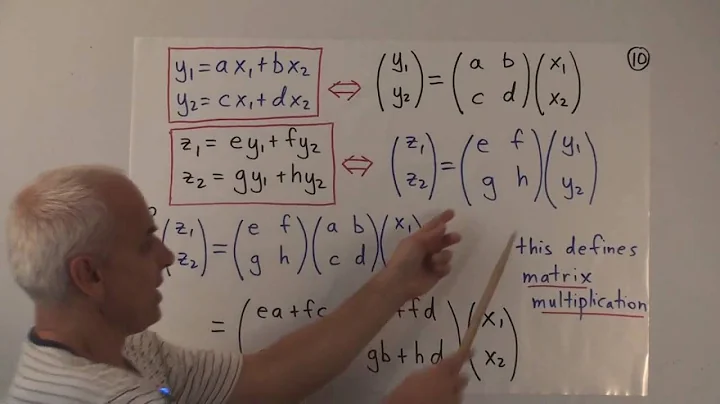 y₁ = ax₁ + bx₂
y₂ = cx₁ + dx₂
⇔ (y₁ y₂) = (a b c d)(x₁ x₂)
10
z₁ = ey₁ + fy₂
z₂ = gy₁ + hy₂
⇔ (z₁ z₂) = (e f g h)(y₁ y₂)
(z₁ z₂) = (e f g h)(a b c d)(x₁
this defines
matrix
multiplication
= (ea + fc + fd
gb + hd)(x₁ x₂)